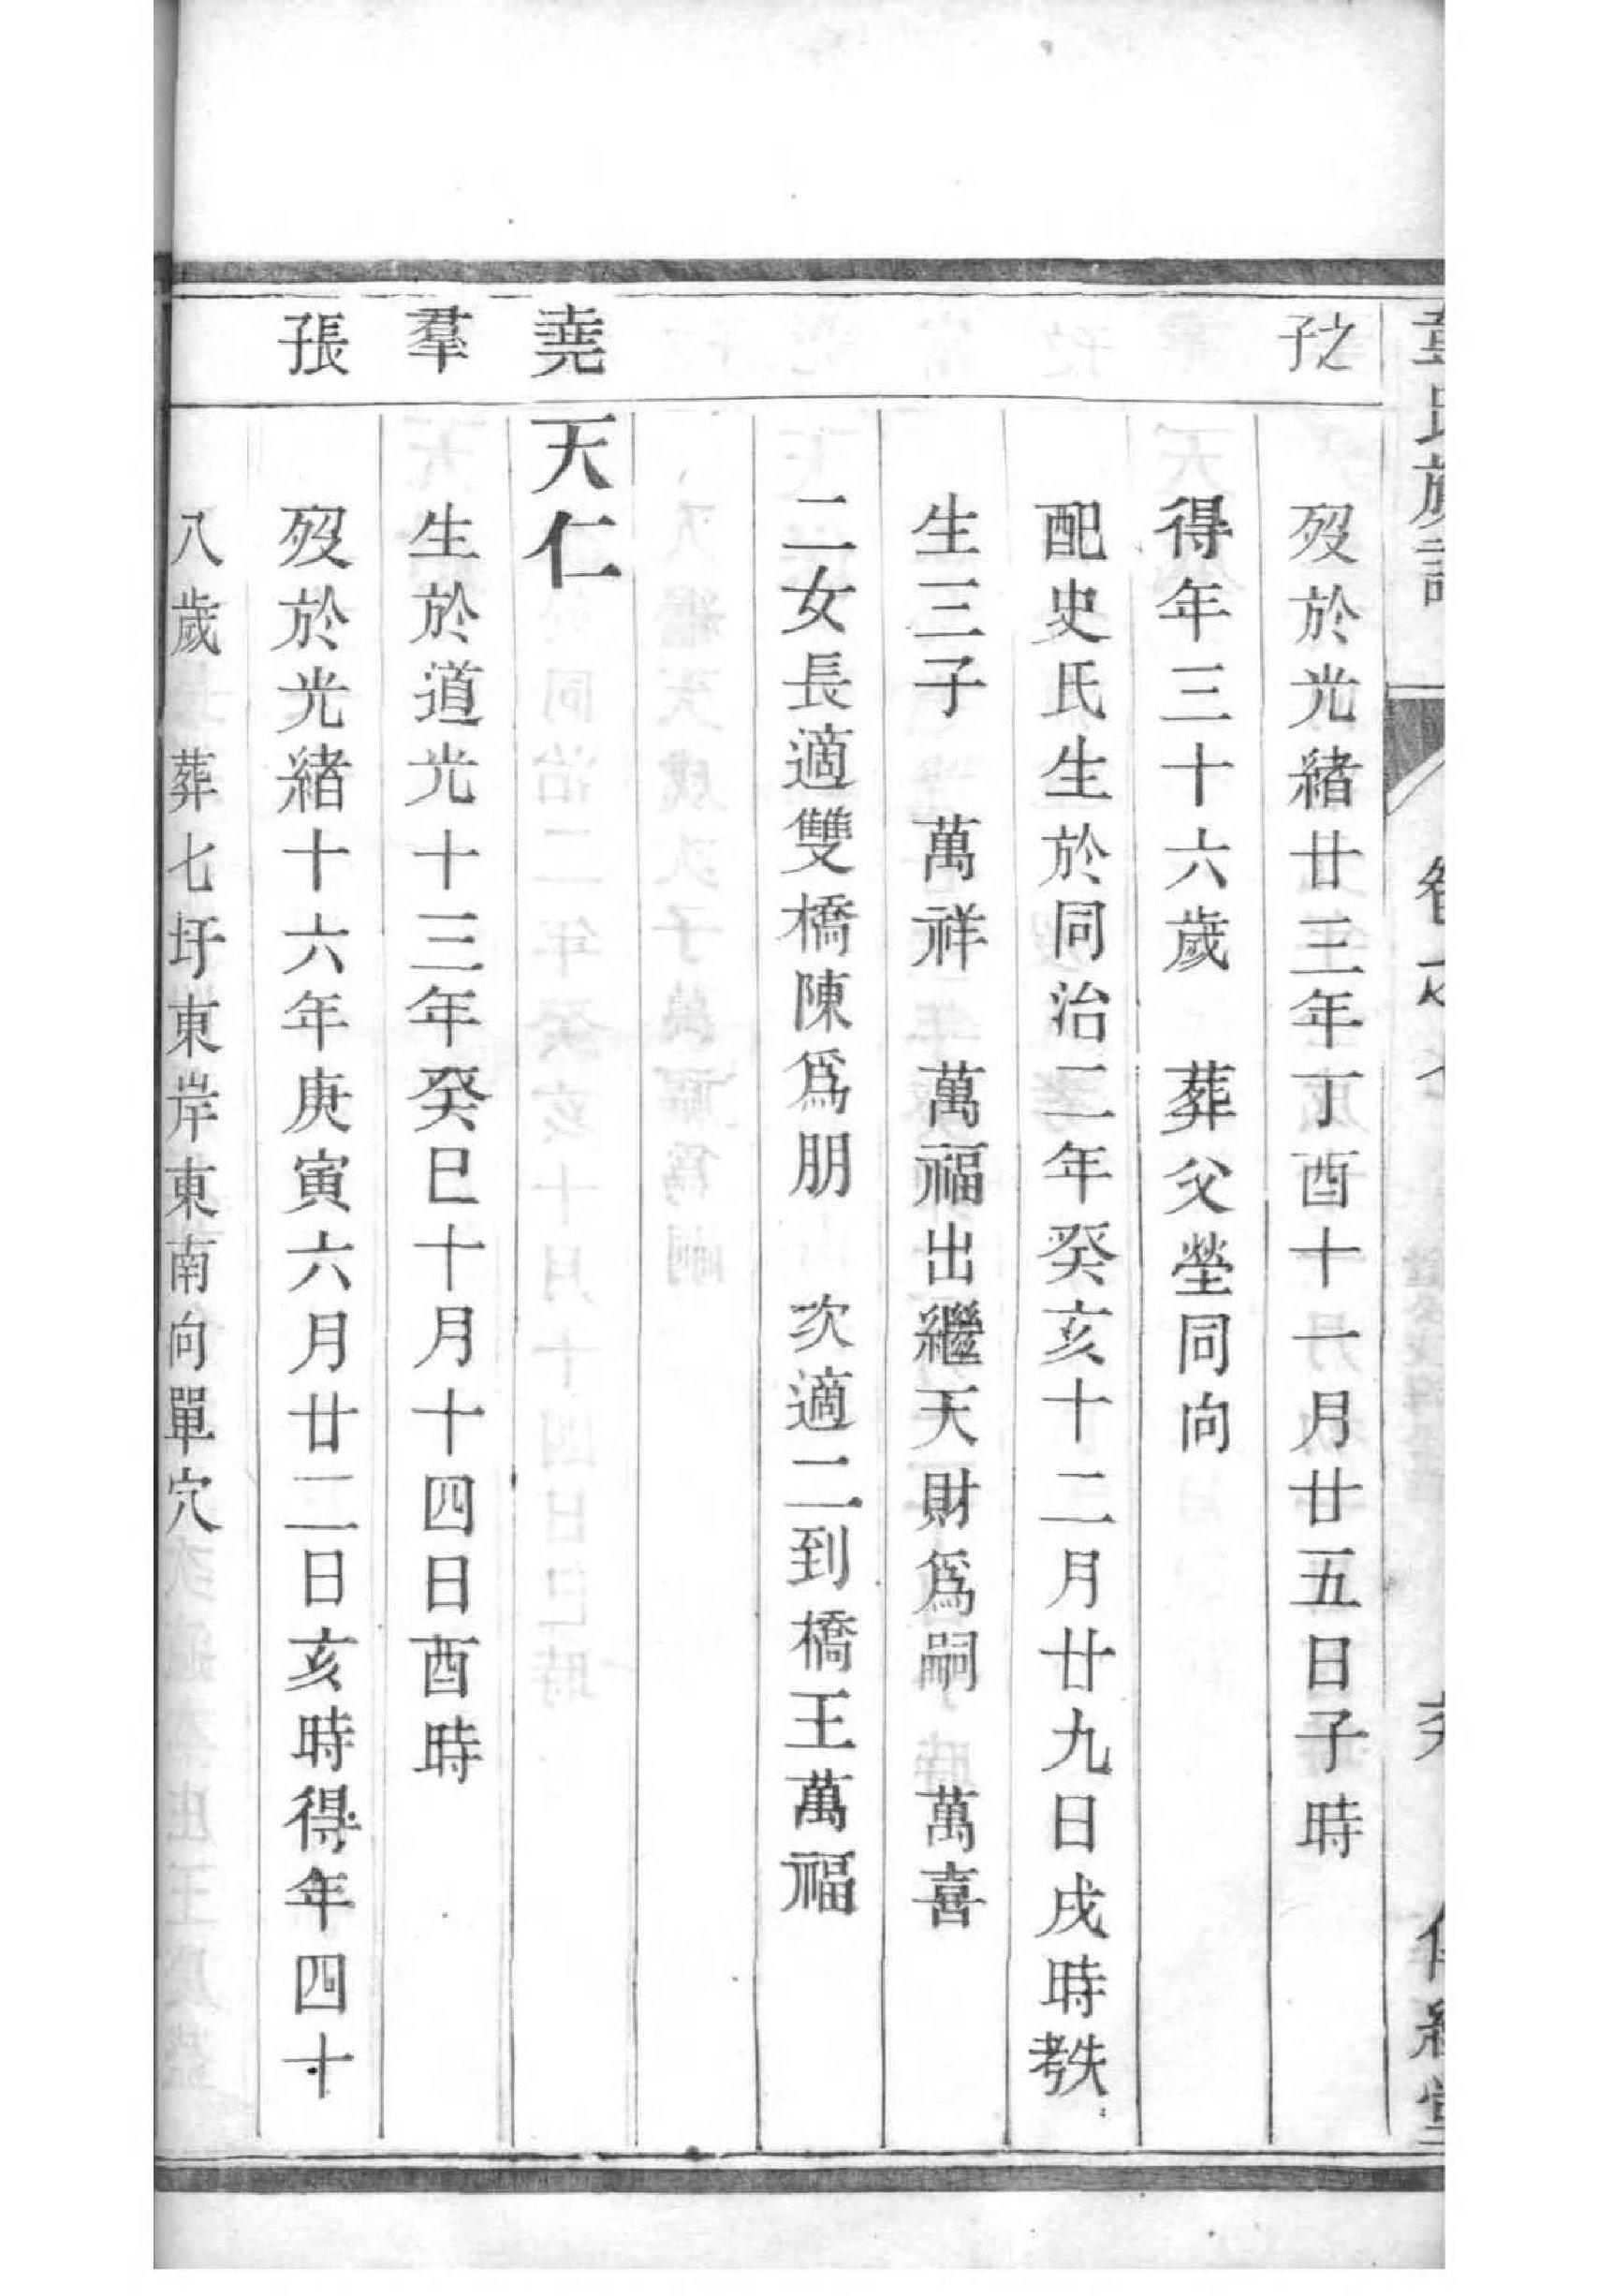 之子
歿於光緒廿三年丁酉十一月廿五日子時
得年三十六歲 葬父塋同向
配史氏生於同治二年癸亥十二月廿九日戌時考失
生三子 萬祥 萬福出繼天財爲嗣 萬喜
二女長適雙橋陳爲朋 次適二到橋王萬福
堯羣張子
天仁
生於道光十三年癸巳十月十四日酉時
歿於光緒十六年庚寅六月廿二日亥時得年四十
八歲 葬七圩東岸東南向單穴